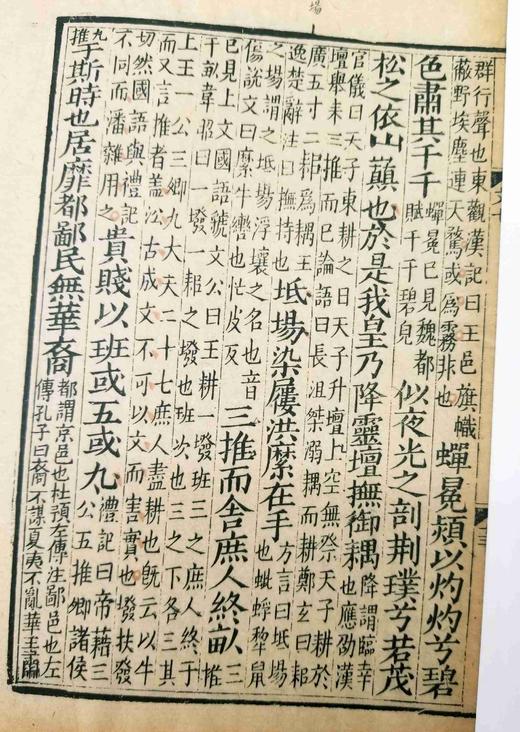 場
群行聲也東觀漢記曰王邑旗幟
蔽野埃塵連天驁或為霧非也
蟬冕熲以灼灼兮碧
色肅其千千
蟬冕已見魏都
賦千千碧皃
似夜光之剖荊璞兮若茂
松之依山巔也於是我皇乃降靈壇撫御耦
降謂臨幸
也應劭漢
官儀曰天子東耕之日天子升壇上空無祭天子耕於
壇舉耒三推而已論語曰長沮桀溺耦而耕鄭玄曰耜
廣五寸二耜爲耦王
逸楚辭注曰撫持也
坻場染屨洪縻在手
方言曰坻場
也蚍蜉犂鼠
之場謂之坻場浮壤之名也音
傷說文曰縻牛轡也忙皮反
三推而舍庶人終畝
三
推
已見上文國語虢文公曰王耕一墢班三之庶人終于
千畝韋昭曰一墢一耜之墢也班次也三之下各三其
上王一公三卿九大夫二十七庶人盡耕也旣云以牛
而又言推者蓋沿古成文不可以文而害實也墢扶發
切然國語與禮記
不同而潘雜用之
貴賤以班或五或九
禮記曰帝藉三
公五推卿諸侯
九
推
于斯時也居靡都鄙民無華裔
都謂京邑也杜預左傳注鄙邑也左
傳孔子曰裔不謀夏夷不亂華王